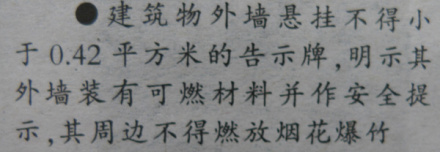 ●建筑物外墙悬挂不得小
于 0.42 平方米的告示牌,明示其
外墙装有可燃材料并作安全提
示,其周边不得燃放烟花爆竹